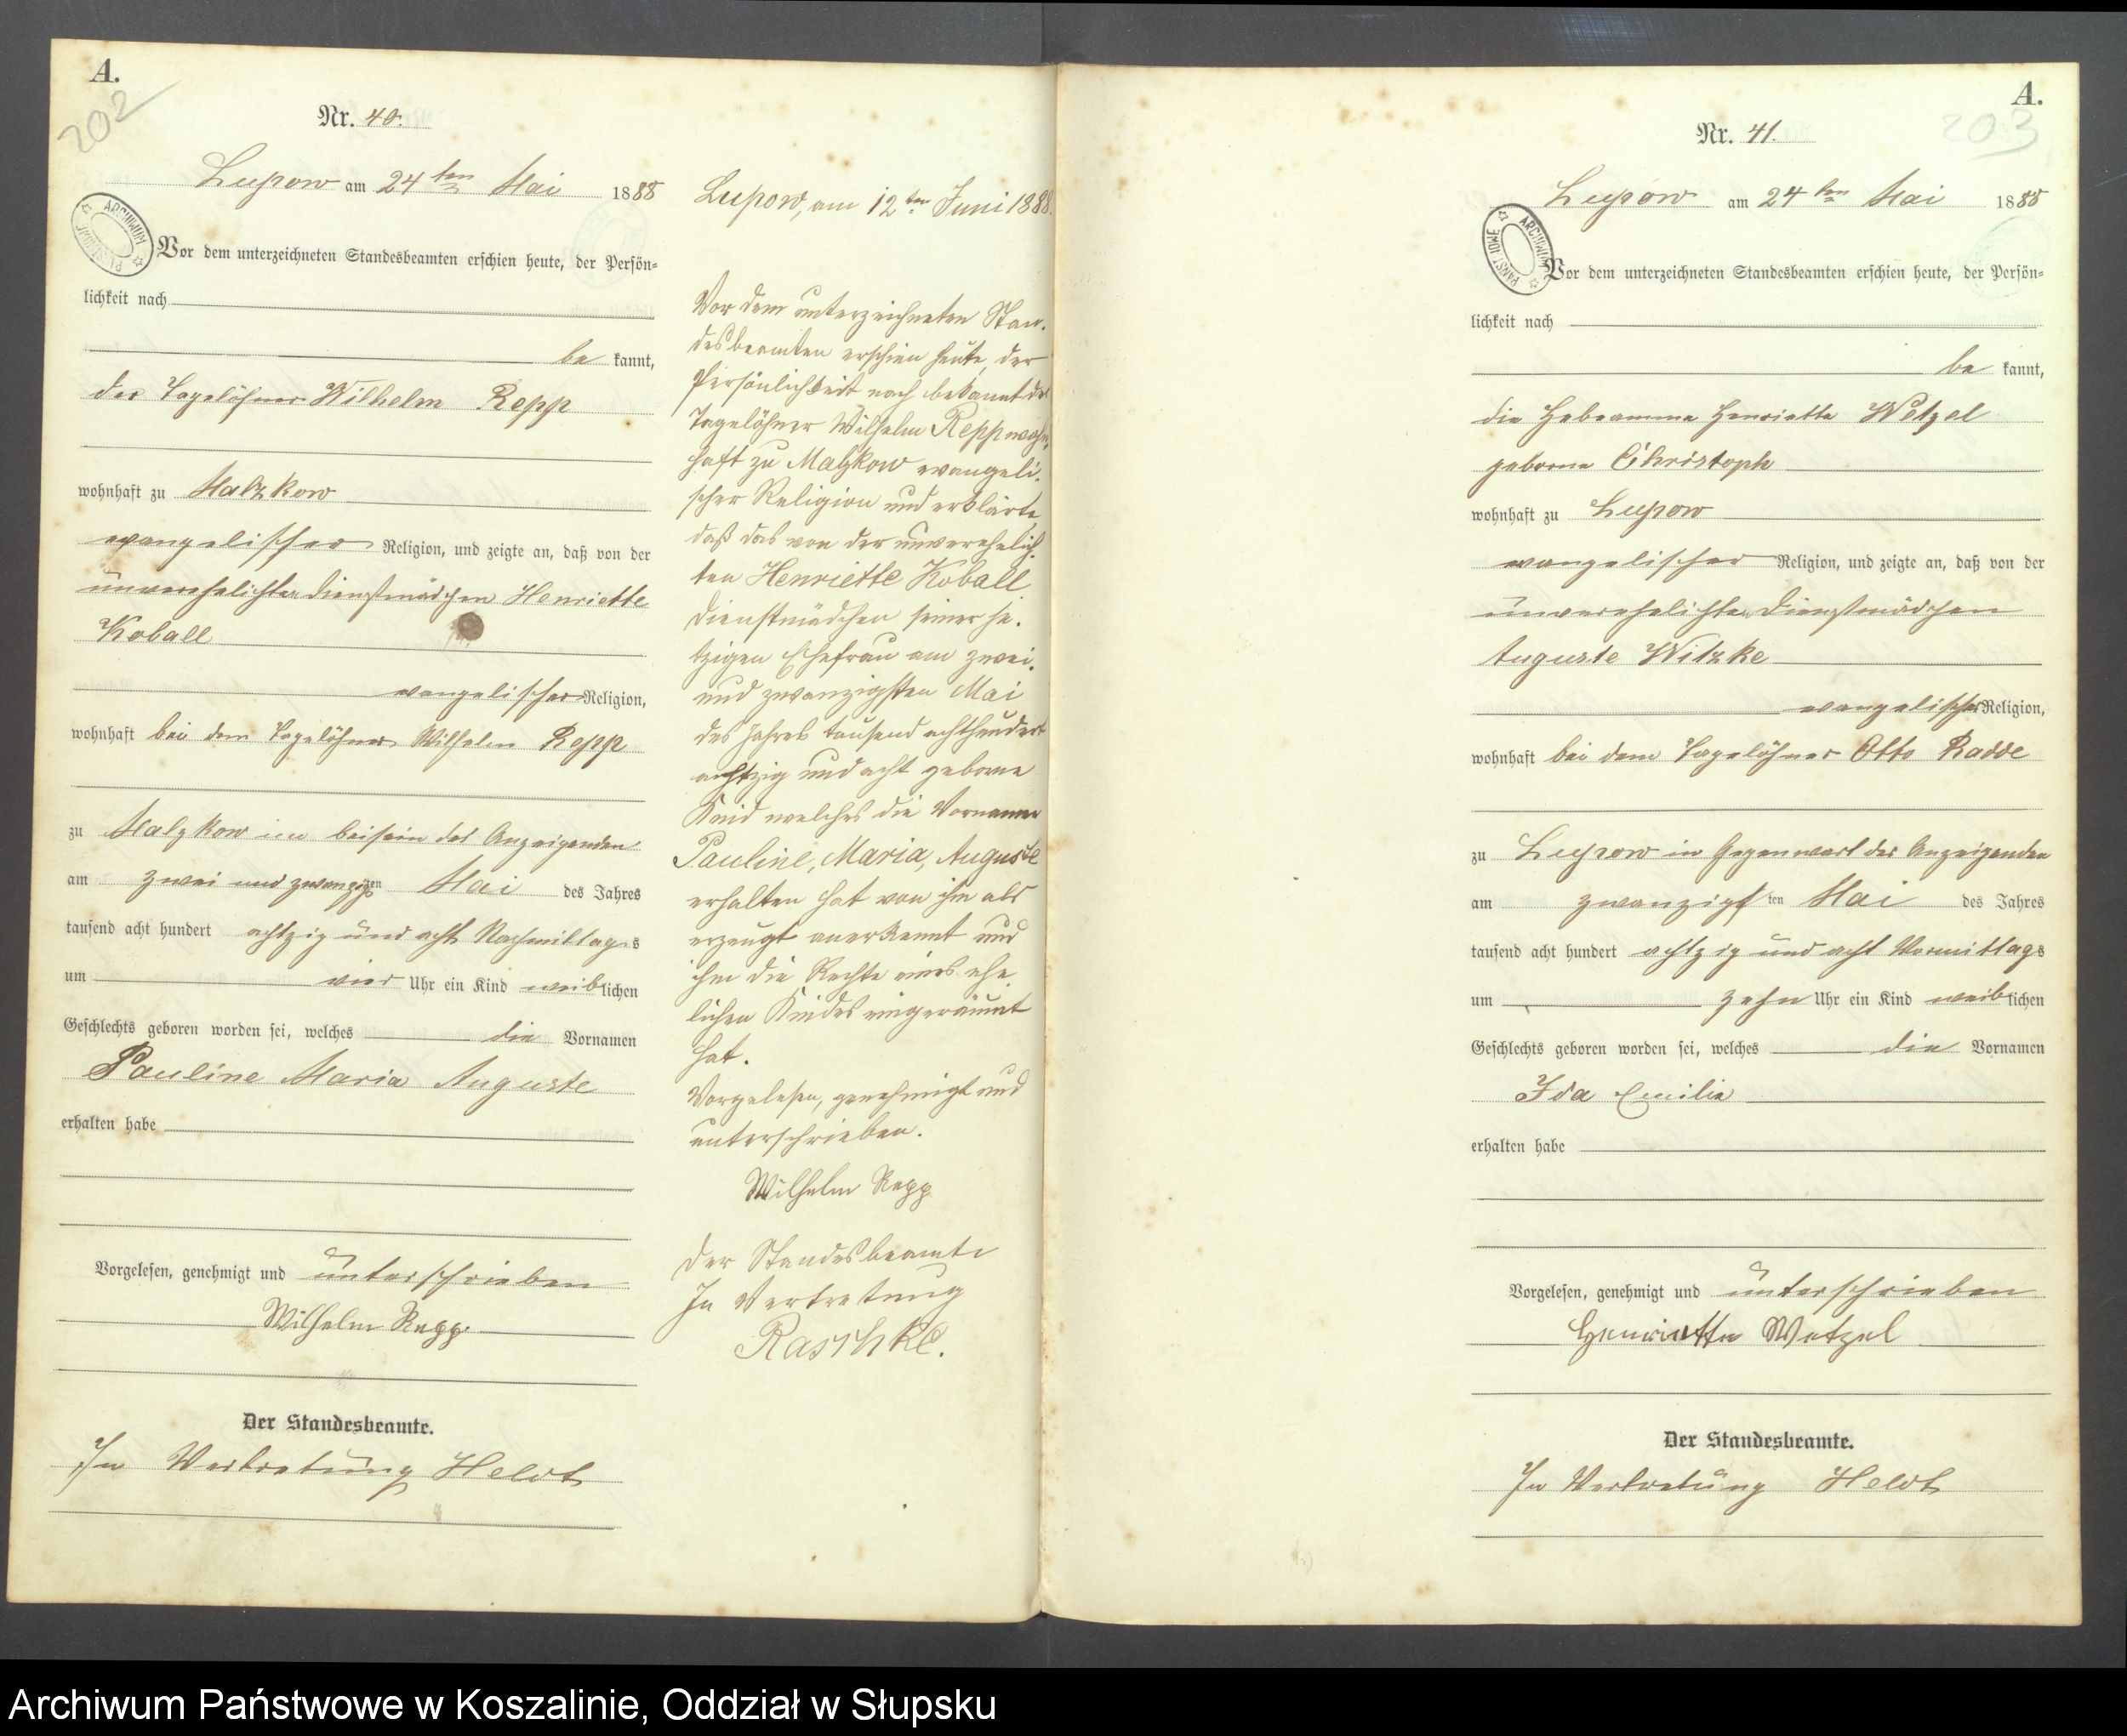 A.
202
Nr. 40.
Lupow am 24ten Mai 1888
ARCHIWUM PAŃSTWOWE
Vor dem unterzeichneten Standesbeamten erschien heute, der Persön-
lichkeit nach
be kannt,
der Tagelöhner Wilhelm Repp
wohnhaft zu Malzkow
evangelischer Religion, und zeigte an, daß von der
unverehelichten Dienstmädchen Henriette
Koball
evangelischer Religion,
wohnhaft bei dem Tagelöhner Wilhelm Repp
zu Malzkow im beisein des Anzeigenden
am zwei und zwanzigsten Mai des Jahres
tausend acht hundert achtzig und acht Nachmittags
um vier Uhr ein Kind weiblichen
Geschlechts geboren worden sei, welches die Vornamen
Pauline Maria Auguste
erhalten habe
Vorgelesen, genehmigt und unterschrieben
Wilhelm Repp.
Der Standesbeamte.
In Vertretung Heldt
Lupow, am 12ten Juni 1888.
Vor dem unterzeichneten Stan-
desbeamten erschien heute, der
Persönlichkeit nach bekannt der
Tagelöhner Wilhelm Repp wohn-
haft zu Malzkow evangeli-
scher Religion und erklärte,
daß das von der unverehelich-
ten Henriette Koball
Dienstmädchen seiner je-
tzigen Ehefrau am zwei-
und zwanzigsten Mai
des Jahres tausend achthundert
achtzig und acht geborne
Kind welches die Vornamen
Pauline, Maria, Auguste
erhalten hat von ihm als
erzeugt anerkannt und
ihm die Rechte eines ehe-
lichen Kindes eingeräumt
hat.
Vorgelesen, genehmigt und
unterschrieben.
Wilhelm Repp
Der Standesbeamte
In Vertretung
Raschke.
A.
203
Nr. 41.
Lupow am 24ten Mai 1888
ARCHIWUM PAŃSTWOWE
Vor dem unterzeichneten Standesbeamten erschien heute, der Persön-
lichkeit nach
be kannt,
die Hebeamme Henriette Wetzel
geborne Christoph
wohnhaft zu Lupow
evangelischer Religion, und zeigte an, daß von der
unverehelichten Dienstmädchen
Auguste Witzke
evangelischer Religion,
wohnhaft bei dem Tagelöhner Otto Radde
zu Lupow in Gegenwart der Anzeigenden
am zwanzigsten Mai des Jahres
tausend acht hundert achtzig und acht Vormittags
um zehn Uhr ein Kind weiblichen
Geschlechts geboren worden sei, welches die Vornamen
Ida Emilie
erhalten habe
Vorgelesen, genehmigt und unterschrieben
Henriette Wetzel
Der Standesbeamte.
In Vertretung Heldt
Archiwum Państwowe w Koszalinie, Oddział w Słupsku